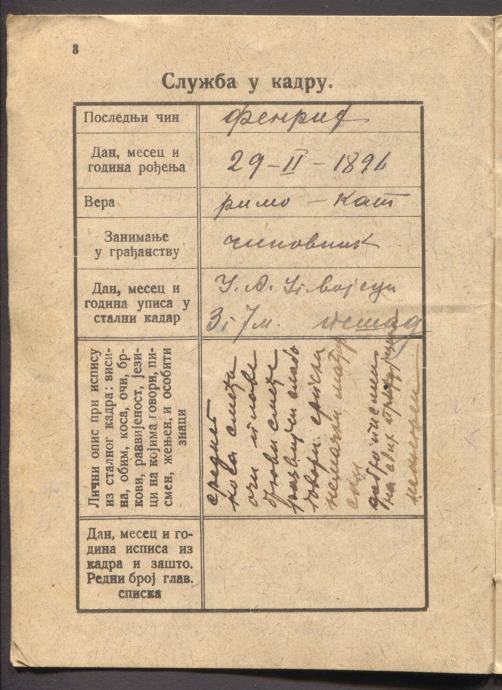 8
Служба у кадру.
Последњи чин
фенриф
Дан, месец и
година рођења
29-II-1896
Вера
римо-кат
Занимање
у грађанству
чиновник
Дан, месец и
година уписа у
стални кадар
У. А. У. војсци
3 и 7 м. пешад
Лични опис при испису
из сталног кадра: виси-
на, обим, коса, очи, бр-
кови, развијеност, јези-
ци на којима говори, пи-
смен, жењен, и особити
знаци
средњег
коса смеђа
очи плаве
бркови смеђе
развијен слабо
говори српски
немачки мађар
ски
добро писмен
на свих
нежењен
Дан, месец и го-
дина исписа из
кадра и зашто.
Редни број глав.
списка